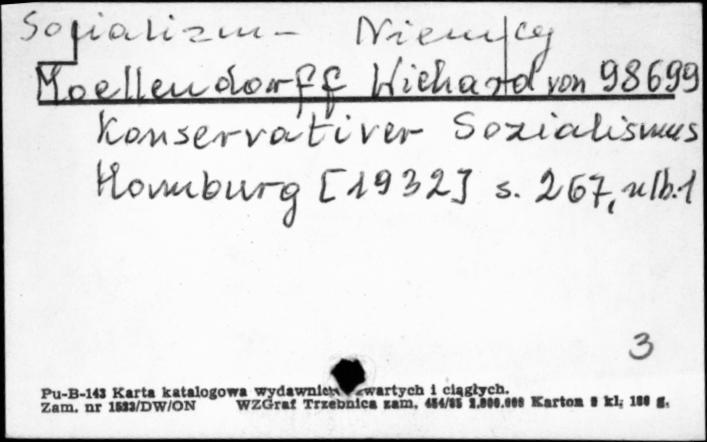 Socjalizm - Niemcy
Moellendorff Wichard von 98699
Konservativer Sozialismus
Hamburg [1932] s. 267, nlb. 1
3
Pu-B-143 Karta katalogowa wydawnictw zwartych i ciągłych.
Zam. nr 1523/DW/ON WZGraf Trzebnica zam. 454/85 2.000.000 Karton kl. 180 g.